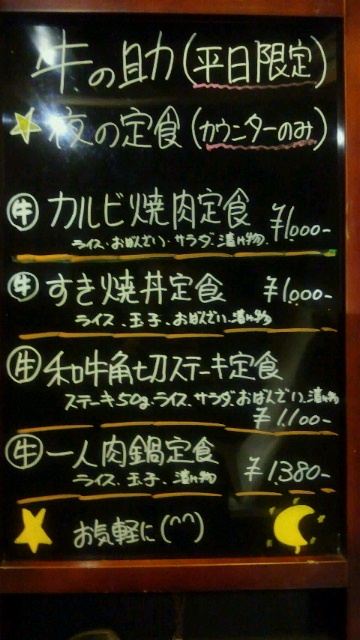 牛の助(平日限定)
夜の定食(カウンターのみ)
牛 カルビ焼肉定食 ¥1,000-
ライス、おばんざい、サラダ、漬け物
牛 すき焼丼定食 ¥1,000-
ライス、玉子、おばんざい、漬け物
牛 和牛角切ステーキ定食
ステーキ50g、ライス、サラダ、おばんざい、漬け物
¥1,100-
牛 一人肉鍋定食 ¥1,380-
ライス、玉子、漬け物
お気軽に(^^)